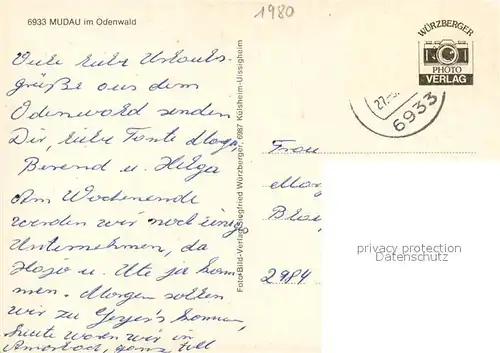 6933 MUDAU im Odenwald
1980
WÜRZBERGER
PHOTO
VERLAG
27.
6933
Viele liebe Urlaubs-
grüße aus dem
Odenwald senden
Dir, liebe Tante Marga,
Berend u. Helga
Am Wochenende
werden wir noch einiges
Unternehmen, da
Hajo u. Ute ja kom
men. Morgen wollen
wir zu Geyer's kommen,
heute waren wir in
Amorbach, ganz toll
Foto-Bild-Verlag Siegfried Würzberger, 6987 Külsheim-Uissigheim
Frau
2984
privacy protection
Datenschutz